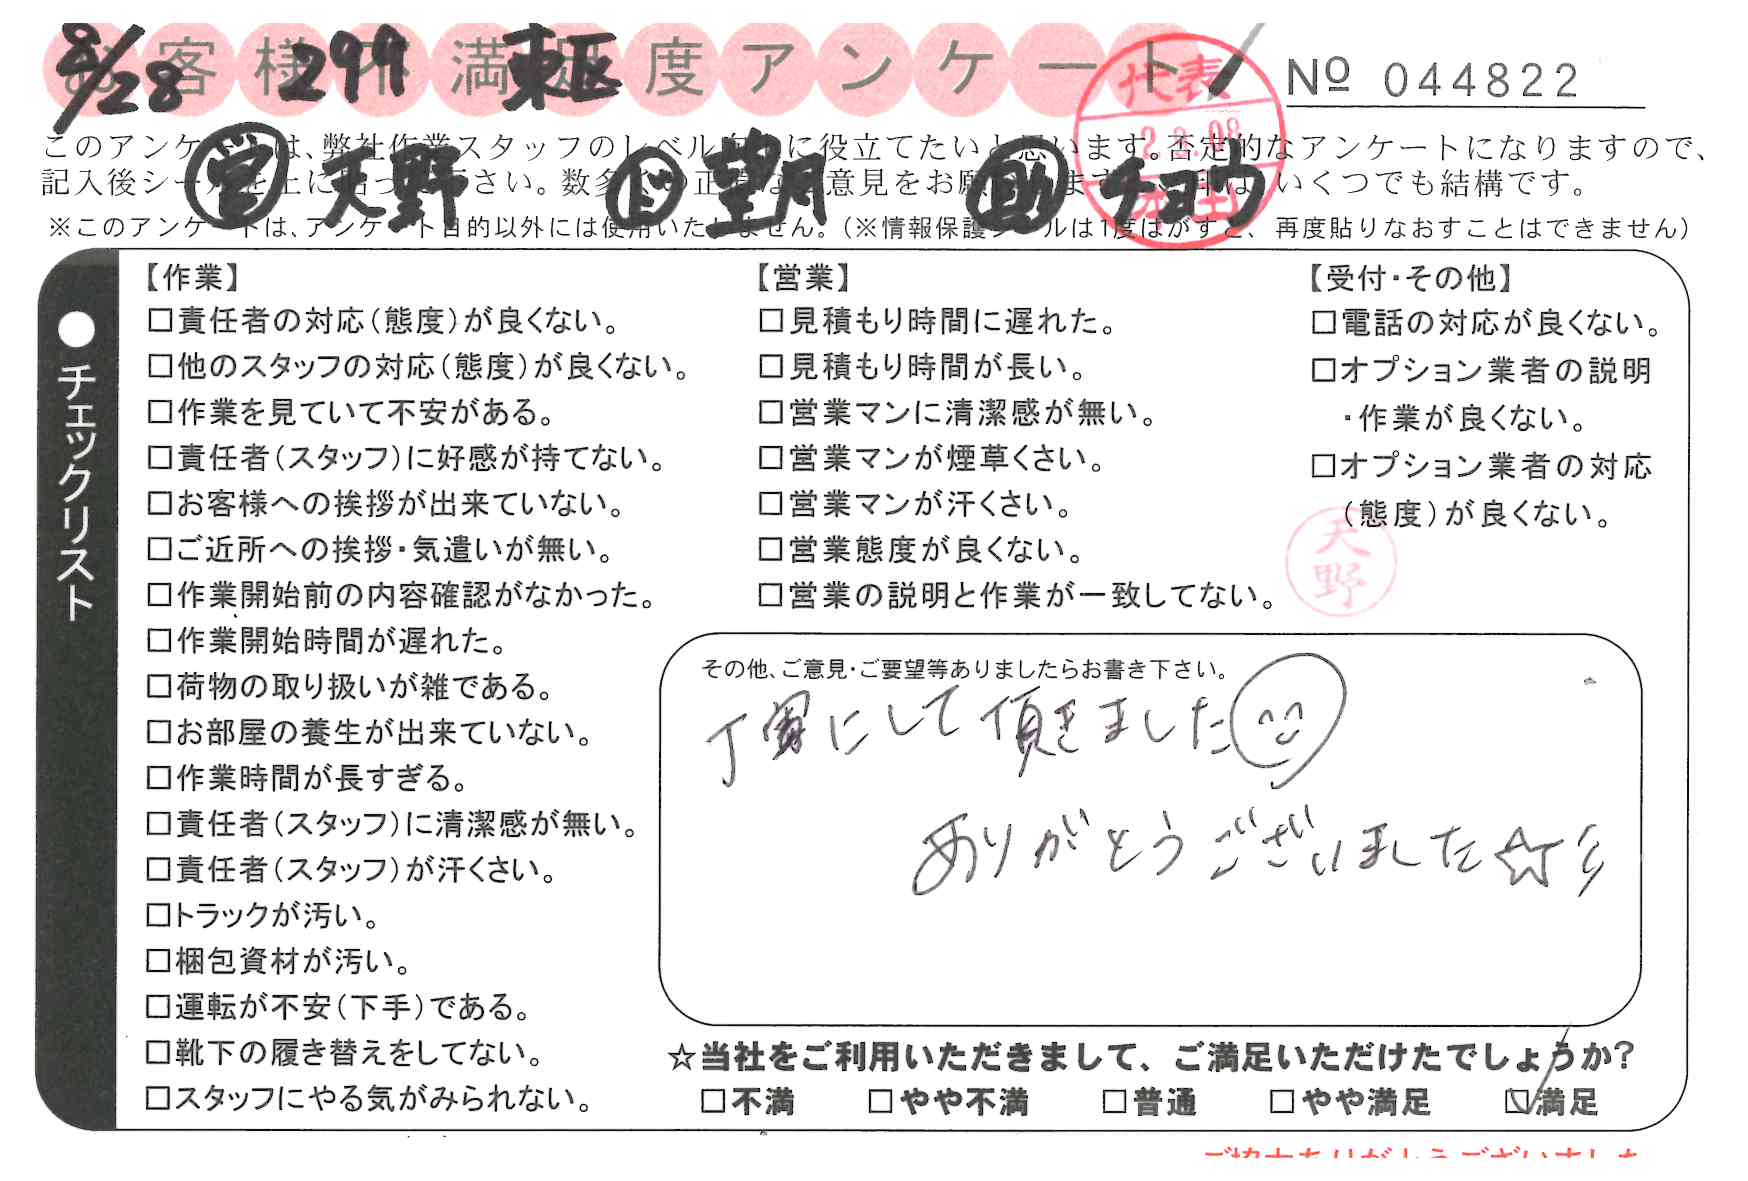 お客様不満足度アンケート
8/28 299 東区
NO 044822
このアンケートは、弊社作業スタッフのレベル向上に役立てたいと思います。否定的なアンケートになりますので、
記入後シールを上に貼って下さい。数多くの正直なご意見をお願いします。いくつでも結構です。
営 天野 ド 望月 助 チョウ
代表
2.9.08
※このアンケートは、アンケート目的以外には使用いたしません。(※情報保護シールは1度はがすと、再度貼りなおすことはできません)
●チェックリスト
【作業】
□責任者の対応(態度)が良くない。
□他のスタッフの対応(態度)が良くない。
□作業を見ていて不安がある。
□責任者(スタッフ)に好感が持てない。
□お客様への挨拶が出来ていない。
□ご近所への挨拶・気遣いが無い。
□作業開始前の内容確認がなかった。
□作業開始時間が遅れた。
□荷物の取り扱いが雑である。
□お部屋の養生が出来ていない。
□作業時間が長すぎる。
□責任者(スタッフ)に清潔感が無い。
□責任者(スタッフ)が汗くさい。
□トラックが汚い。
□梱包資材が汚い。
□運転が不安(下手)である。
□靴下の履き替えをしてない。
□スタッフにやる気がみられない。
【営業】
□見積もり時間に遅れた。
□見積もり時間が長い。
□営業マンに清潔感が無い。
□営業マンが煙草くさい。
□営業マンが汗くさい。
□営業態度が良くない。
□営業の説明と作業が一致してない。
【受付・その他】
□電話の対応が良くない。
□オプション業者の説明
・作業が良くない。
□オプション業者の対応
(態度)が良くない。
天野
その他、ご意見・ご要望等ありましたらお書き下さい。
丁寧にして頂きました
ありがとうございました☆
☆当社をご利用いただきまして、ご満足いただけたでしょうか?
□不満 □やや不満 □普通 □やや満足 ☑満足
ご協力ありがとうございました